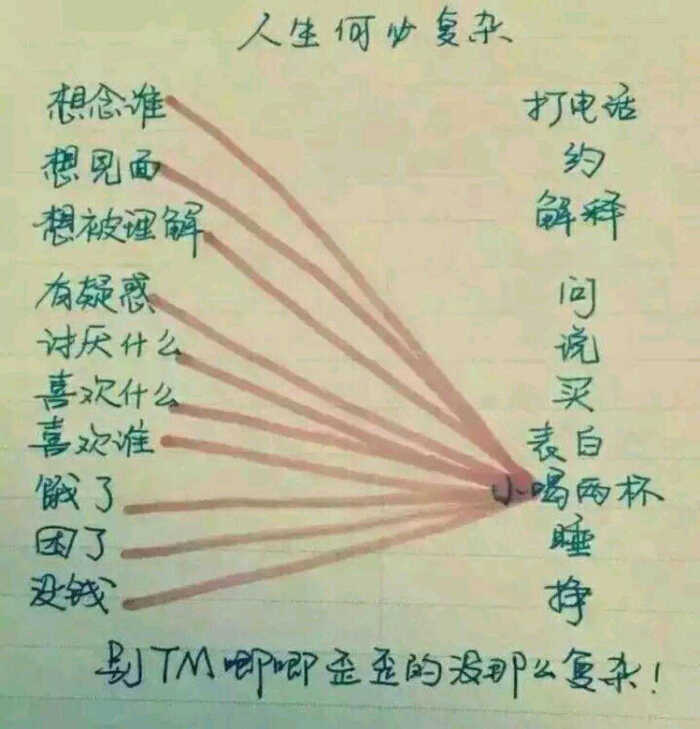 人生何必复杂
想念谁 打电话
想见面 约
想被理解 解释
有疑惑 问
讨厌什么 说
喜欢什么 买
喜欢谁 表白
饿了 小喝两杯
困了 睡
没钱 挣
别TM唧唧歪歪的没那么复杂!